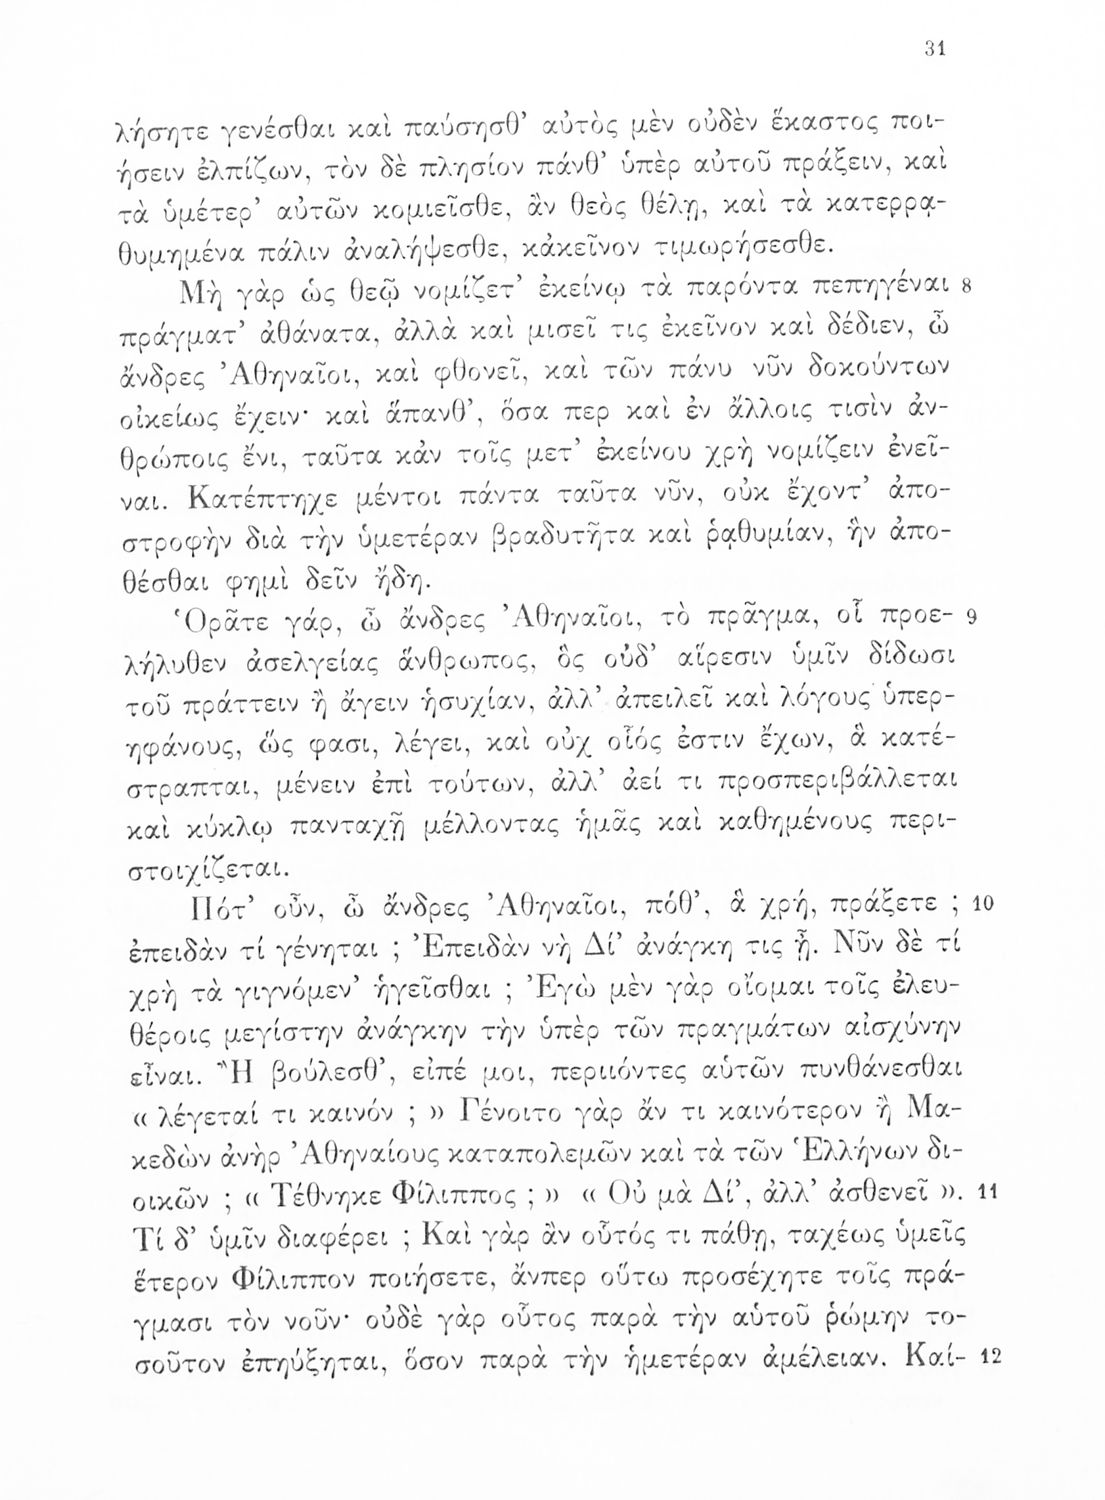 31
λήσητε γενέσθαι καὶ παύσησθ’ αὑτὸς μὲν οὐδὲν ἕκαστος ποι-
ήσειν ἐλπίζων, τὸν δὲ πλησίον πάνθ’ ὑπὲρ αὑτοῦ πράξειν, καὶ
τὰ ὑμέτερ’ αὐτῶν κομιεῖσθε, ἂν θεὸς θέλῃ, καὶ τὰ κατερρᾳ-
θυμημένα πάλιν ἀναλήψεσθε, κἀκεῖνον τιμωρήσεσθε.
Μὴ γὰρ ὡς θεῷ νομίζετ’ ἐκείνῳ τὰ παρόντα πεπηγέναι 8
πράγματ’ ἀθάνατα, ἀλλὰ καὶ μισεῖ τις ἐκεῖνον καὶ δέδιεν, ὦ
ἄνδρες Ἀθηναῖοι, καὶ φθονεῖ, καὶ τῶν πάνυ νῦν δοκούντων
οἰκείως ἔχειν· καὶ ἅπανθ’, ὅσα περ καὶ ἐν ἄλλοις τισὶν ἀν-
θρώποις ἔνι, ταῦτα κἀν τοῖς μετ’ ἐκείνου χρὴ νομίζειν ἐνεῖ-
ναι. Κατέπτηχε μέντοι πάντα ταῦτα νῦν, οὐκ ἔχοντ’ ἀπο-
στροφὴν διὰ τὴν ὑμετέραν βραδυτῆτα καὶ ῥᾳθυμίαν, ἣν ἀπο-
θέσθαι φημὶ δεῖν ἤδη.
Ὁρᾶτε γάρ, ὦ ἄνδρες Ἀθηναῖοι, τὸ πρᾶγμα, οἷ προε- 9
λήλυθεν ἀσελγείας ἅνθρωπος, ὃς οὐδ’ αἵρεσιν ὑμῖν δίδωσι
τοῦ πράττειν ἢ ἄγειν ἡσυχίαν, ἀλλ’ ἀπειλεῖ καὶ λόγους ὑπερ-
ηφάνους, ὥς φασι, λέγει, καὶ οὐχ οἷός ἐστιν ἔχων, ἃ κατέ-
στραπται, μένειν ἐπὶ τούτων, ἀλλ’ ἀεί τι προσπεριβάλλεται
καὶ κύκλῳ πανταχῇ μέλλοντας ἡμᾶς καὶ καθημένους περι-
στοιχίζεται.
Πότ’ οὖν, ὦ ἄνδρες Ἀθηναῖοι, πόθ’, ἃ χρή, πράξετε ; 10
ἐπειδὰν τί γένηται ; Ἐπειδὰν νὴ Δί’ ἀνάγκη τις ᾖ. Νῦν δὲ τί
χρὴ τὰ γιγνόμεν’ ἡγεῖσθαι ; Ἐγὼ μὲν γὰρ οἴομαι τοῖς ἐλευ-
θέροις μεγίστην ἀνάγκην τὴν ὑπὲρ τῶν πραγμάτων αἰσχύνην
εἶναι. Ἢ βούλεσθ’, εἰπέ μοι, περιιόντες αὑτῶν πυνθάνεσθαι
« λέγεταί τι καινόν ; » Γένοιτο γὰρ ἄν τι καινότερον ἢ Μα-
κεδὼν ἀνὴρ Ἀθηναίους καταπολεμῶν καὶ τὰ τῶν Ἑλλήνων δι-
οικῶν ; « Τέθνηκε Φίλιππος ; » « Οὐ μὰ Δί’, ἀλλ’ ἀσθενεῖ ». 11
Τί δ’ ὑμῖν διαφέρει ; Καὶ γὰρ ἂν οὗτός τι πάθῃ, ταχέως ὑμεῖς
ἕτερον Φίλιππον ποιήσετε, ἄνπερ οὕτω προσέχητε τοῖς πρά-
γμασι τὸν νοῦν· οὐδὲ γὰρ οὗτος παρὰ τὴν αὑτοῦ ῥώμην το-
σοῦτον ἐπηύξηται, ὅσον παρὰ τὴν ἡμετέραν ἀμέλειαν. Καί- 12